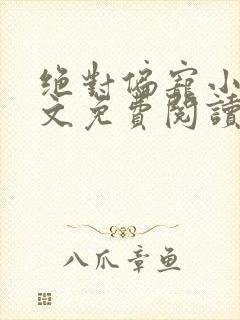 绝對偏寵小
文免費閱讀
八爪章鱼